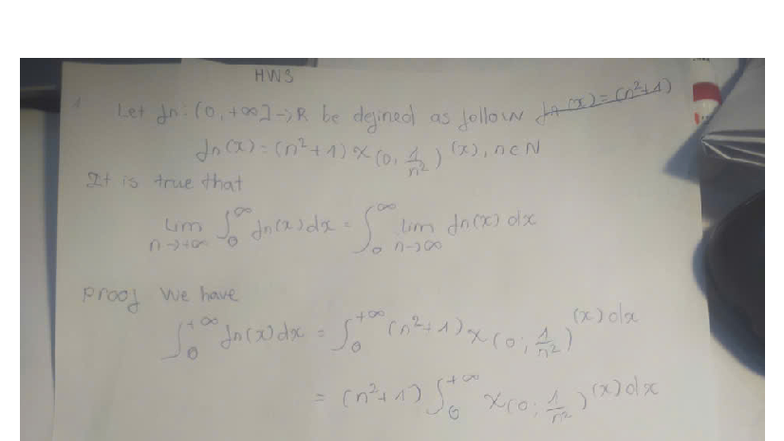 HW3
1 Let fn: (0, +∞] → R be defined as follow fn(x) = (n²+1)
fn(x) = (n²+1) χ(0, 1/n²)(x), n∈N
It is true that
lim n→+∞ ∫₀^∞ fn(x)dx = ∫₀^∞ lim n→∞ fn(x) dx
Proof We have
∫₀^+∞ fn(x)dx = ∫₀^+∞ (n²+1) χ(0; 1/n²)(x)dx
= (n²+1) ∫₀^+∞ χ(0; 1/n²)(x)dx